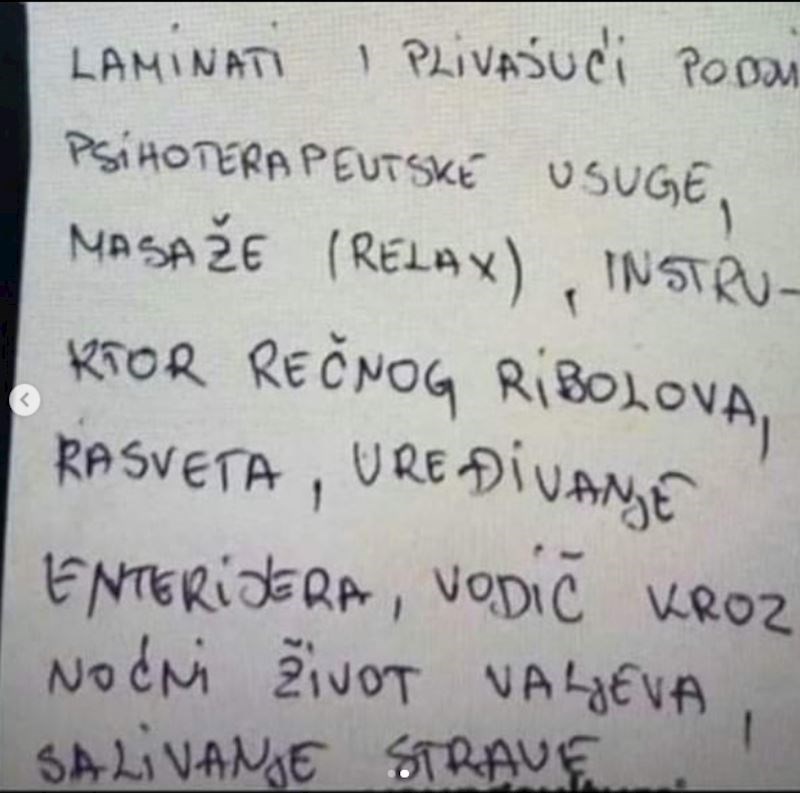 LAMINATI I PLIVAJUĆI PODOVI
PSIHOTERAPEUTSKE USUGE,
MASAŽE (RELAX), INSTRU-
KTOR REČNOG RIBOLOVA,
RASVETA, UREĐIVANJE
ENTERIJERA, VODIČ KROZ
NOĆNI ŽIVOT VALJEVA,
SALIVANJE STRAVE